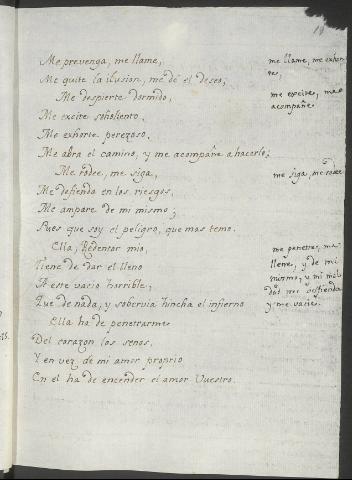 Me prevenga, me llame,
Me quite la ilusion, me dé el deseo,
Me despierte dormido,
Me excite soñoliento,
Me exhorte perezoso,
Me abra el camino, y me acompañe a hacerlo;
Me rodee, me siga,
Me defienda en los riesgos,
Me ampare de mi mismo;
Pues que soy el peligro, que mas temo.
Ella, Redentor mio,
Tiene de dar el lleno
A este vacio horrible,
Que de nada, y sobervia hincha el infierno
Ella ha de penetrarme
Del corazon los senos,
Y en vez de mi amor proprio
En el ha de encender el amor Vuestro.
me llame, me exhor-
te,
me excite, me
acompañe
me siga, me rodee
me penetre, me
llene, y de mi
mismo, y mi
me defienda
y me vacie